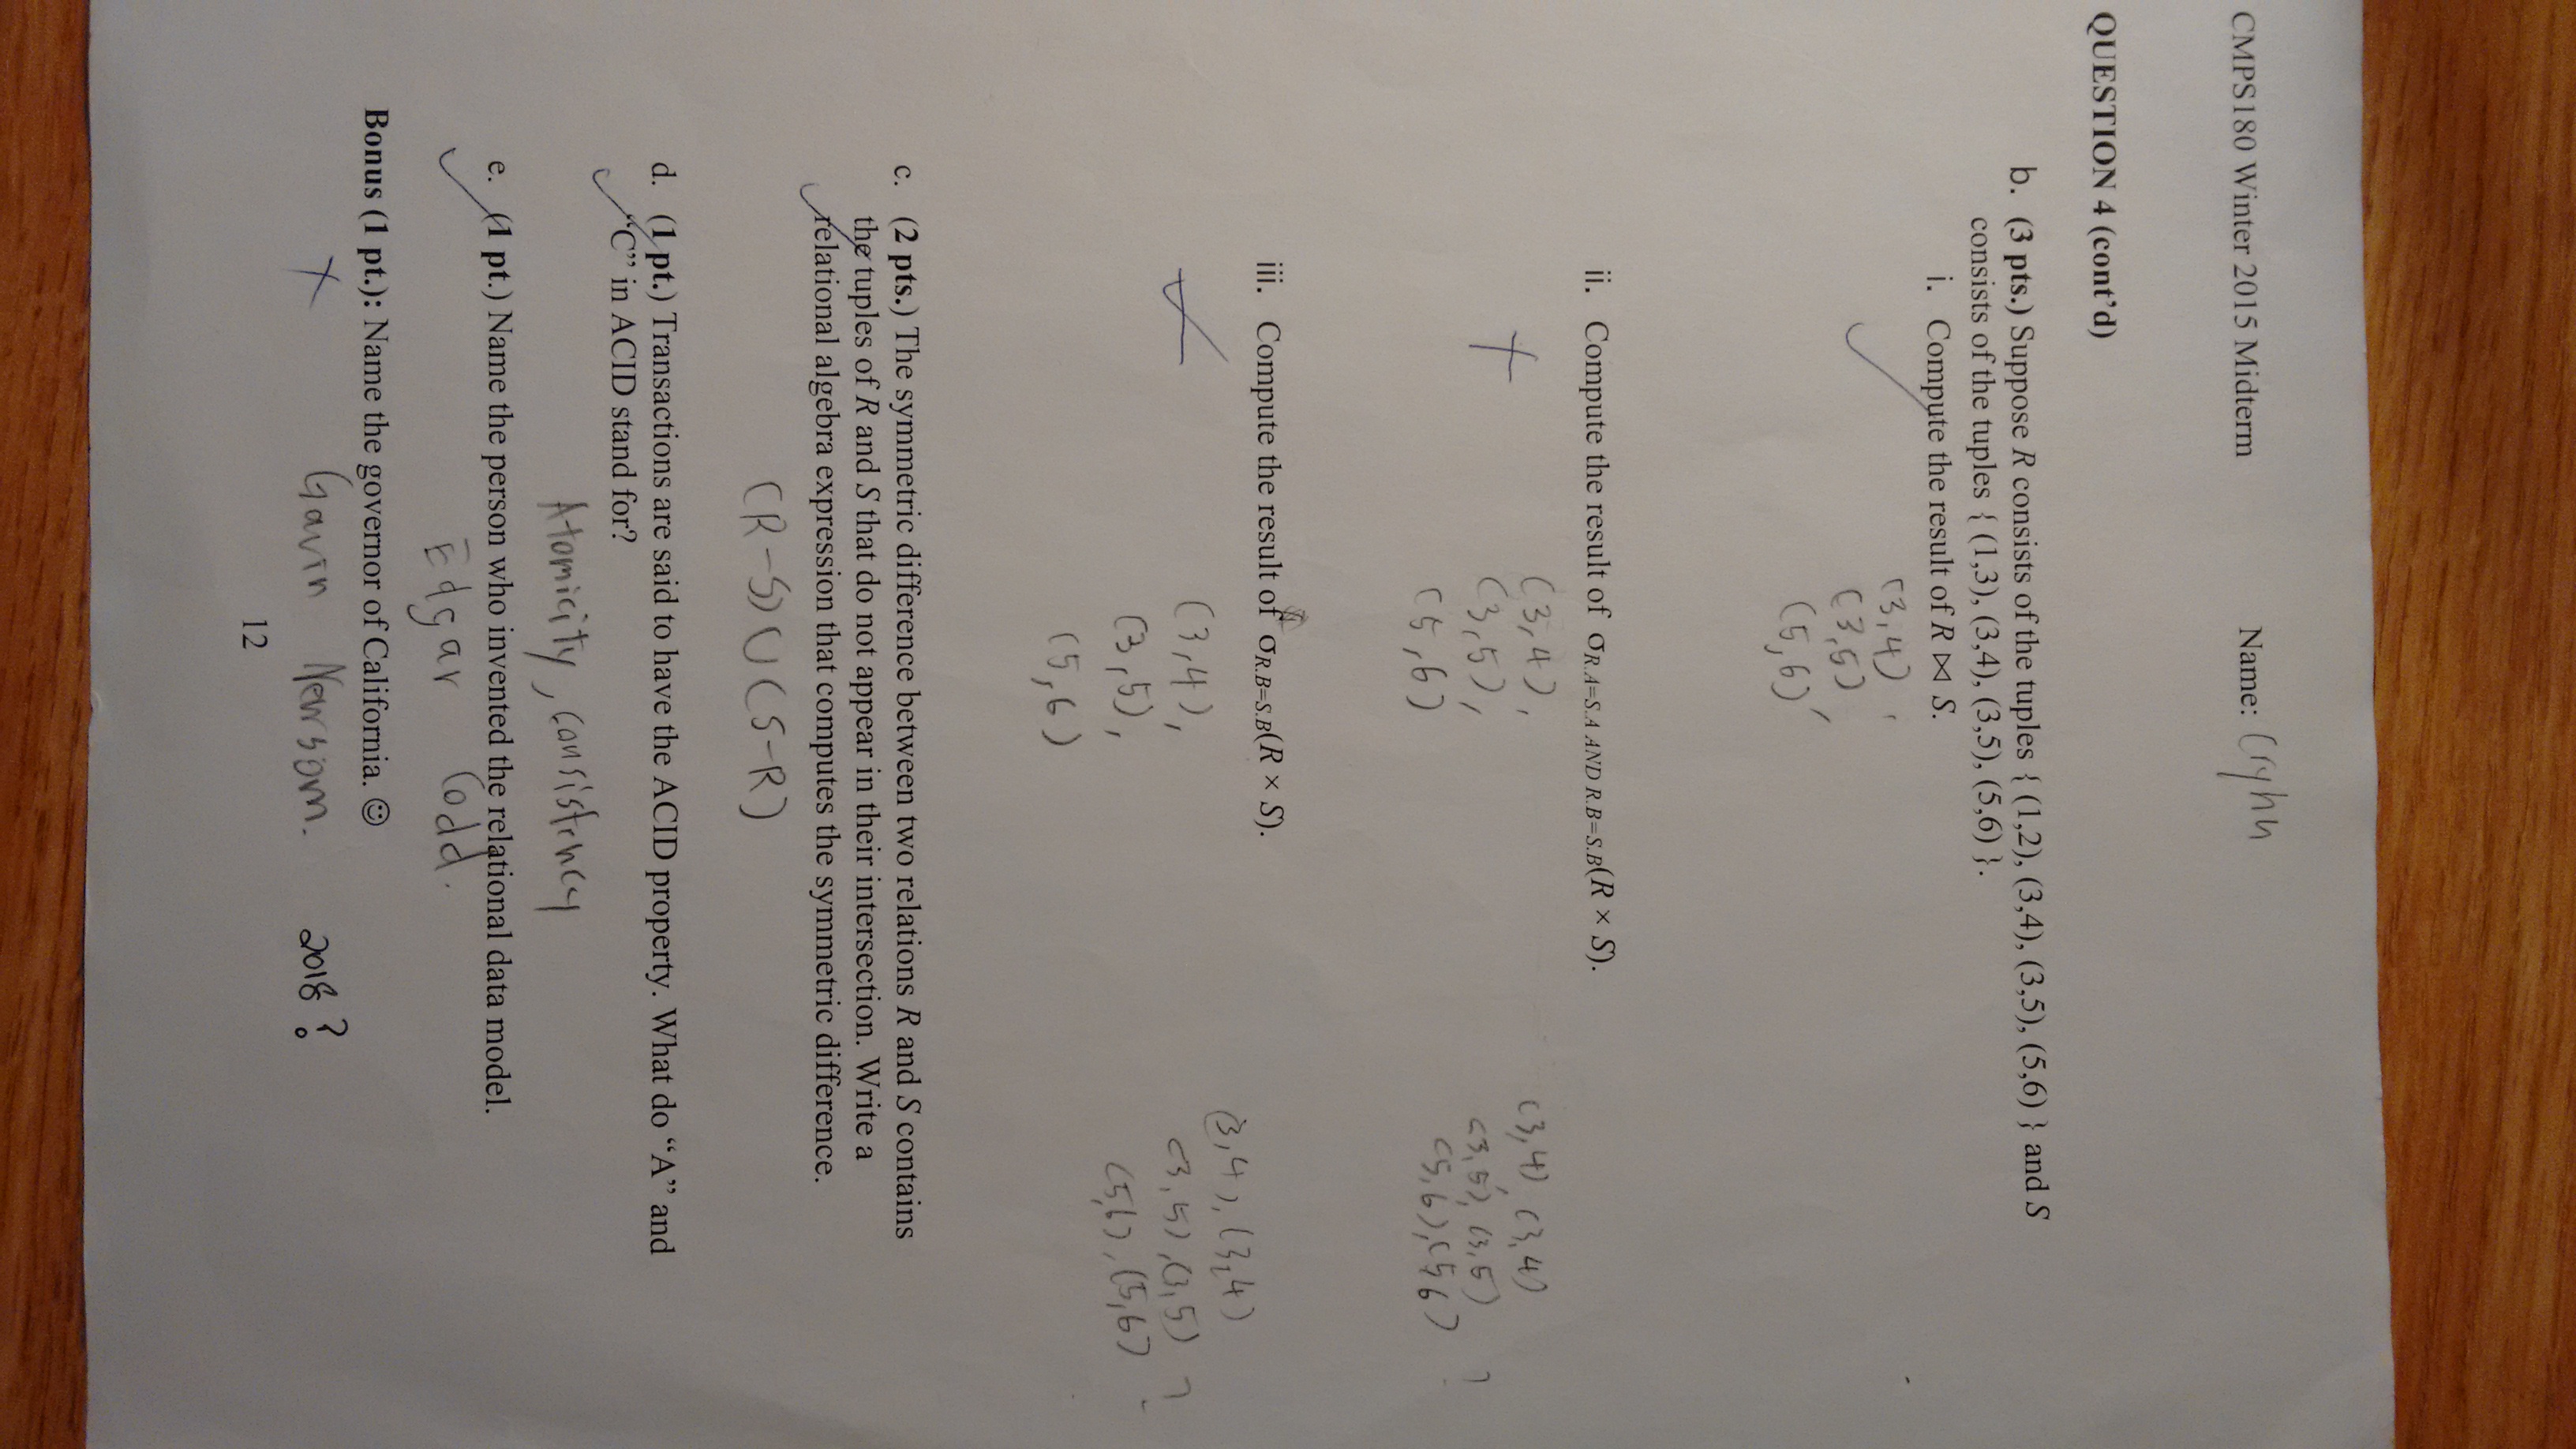 CMPS180 Winter 2015 Midterm Name:
QUESTION 4 (cont'd)
b. (3 pts.) Suppose R consists of the tuples { (1,2), (3,4), (3,5), (5,6) } and S
consists of the tuples { (1,3), (3,4), (3,5), (5,6) }.
i. Compute the result of R ⋈ S.
(3,4) ,
(3,5) ,
(5,6)
ii. Compute the result of σR.A=S.A AND R.B=S.B(R × S).
(3,4) , (3,4) (3,4)
(3,5) , (3,5), (3,5)
(5,6) (5,6),(5,6)
iii. Compute the result of σR.B=S.B(R × S).
(3,4) , (3,4), (3,4)
(3,5) , (3,5), (3,5)
(5,6) (5,6), (5,6)
c. (2 pts.) The symmetric difference between two relations R and S contains
the tuples of R and S that do not appear in their intersection. Write a
relational algebra expression that computes the symmetric difference.
(R-S) ∪ (S-R)
d. (1 pt.) Transactions are said to have the ACID property. What do “A” and
“C” in ACID stand for?
Atomicity, Consistency
e. (1 pt.) Name the person who invented the relational data model.
Edgar Codd.
Bonus (1 pt.): Name the governor of California. ☺
Gavin Newsom. 2018?
12